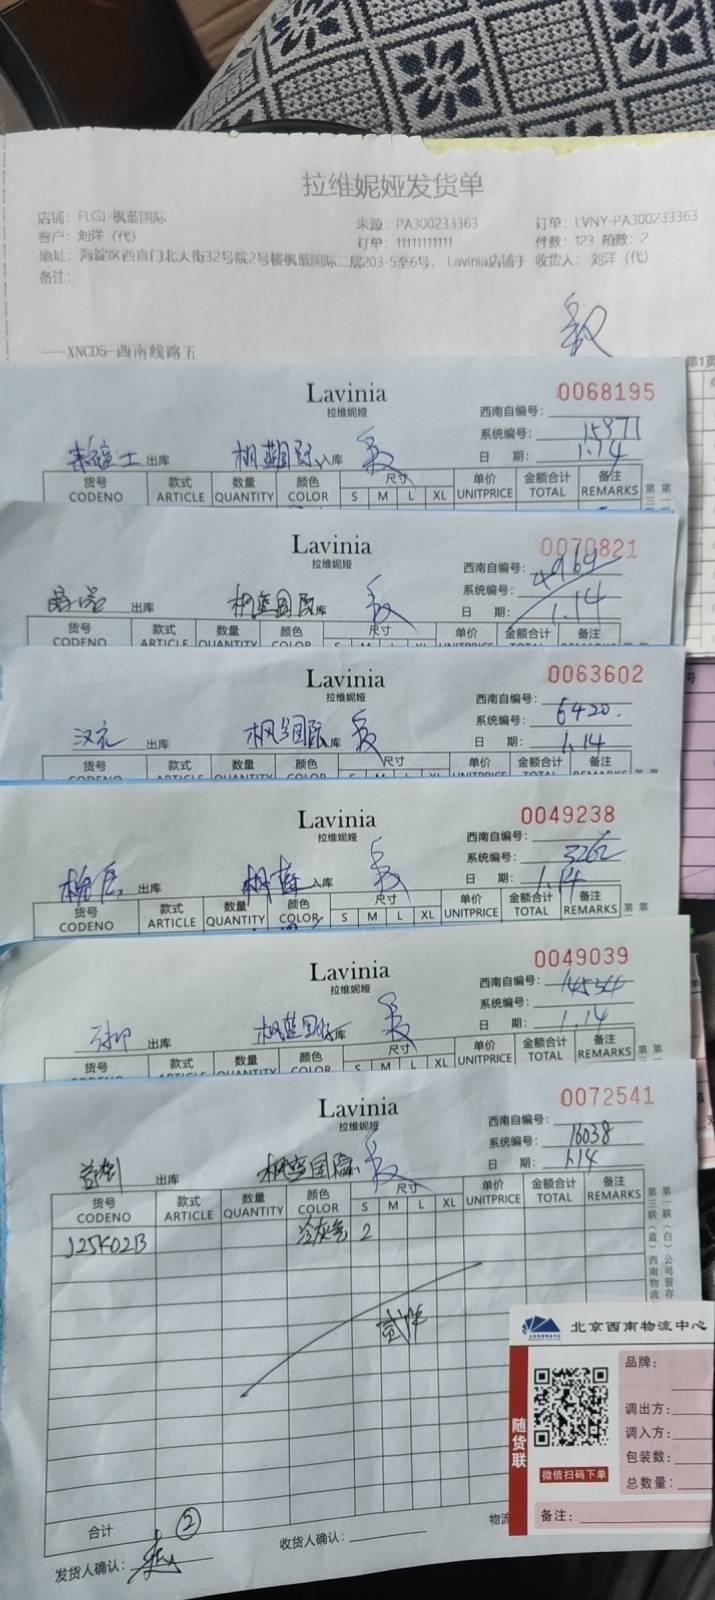 拉维妮娅发货单
店铺：FLGJ-枫蓝国际 来源：PA300233363 订单：LVNY-PA300233363
客户：刘洋（代） 订单：11111111111 件数：123 箱数：2
地址：海淀区西直门北大街32号院2号楼枫蓝国际二层203-5至6号，Lavinia店铺于 收货人：刘洋（代）
备注：
——XNCD5-西南线路五
第1页
Lavinia 0068195
拉维妮娅 西南自编号：
系统编号：15371
出库 枫蓝国际入库 日 期：1.14
货号 款式 数量 颜色 尺寸 单价 金额合计 备注
CODENO ARTICLE QUANTITY COLOR S M L XL UNITPRICE TOTAL REMARKS
Lavinia 0070821
拉维妮娅 西南自编号：4964
系统编号：
出库 枫蓝国际库 日 期：1.14
货号 款式 数量 颜色 尺寸 单价 金额合计 备注
CODENO ARTICLE QUANTITY COLOR S M L XL UNITPRICE TOTAL REMARKS
Lavinia 0063602
拉维妮娅 西南自编号：
系统编号：6420.
汉光 出库 枫蓝国际库 日 期：1.14
货号 款式 数量 颜色 尺寸 单价 金额合计 备注
CODENO ARTICLE QUANTITY COLOR S M L XL UNITPRICE TOTAL REMARKS
Lavinia 0049238
拉维妮娅 西南自编号：
系统编号：3262
出库 枫蓝入库 日 期：1.14
货号 款式 数量 颜色 尺寸 单价 金额合计 备注
CODENO ARTICLE QUANTITY COLOR S M L XL UNITPRICE TOTAL REMARKS
Lavinia 0049039
拉维妮娅 西南自编号：14534
系统编号：
出库 枫蓝国际库 日 期：1.14
货号 款式 数量 颜色 尺寸 单价 金额合计 备注
CODENO ARTICLE QUANTITY COLOR S M L XL UNITPRICE TOTAL REMARKS
Lavinia 0072541
拉维妮娅 西南自编号：
系统编号：16038
出库 枫蓝国际 日 期：1.14
货号 款式 数量 颜色 尺寸 单价 金额合计 备注
CODENO ARTICLE QUANTITY COLOR S M L XL UNITPRICE TOTAL REMARKS
J25K02B 冷灰色 2
贰件
第一联（白）公司留存
第三联（蓝）西南物流
合计 ②
发货人确认： 收货人确认： 物流
北京西南物流中心
随货联
微信扫码下单
品牌：
调出方：
调入方：
包装数：
总数量：
备注：